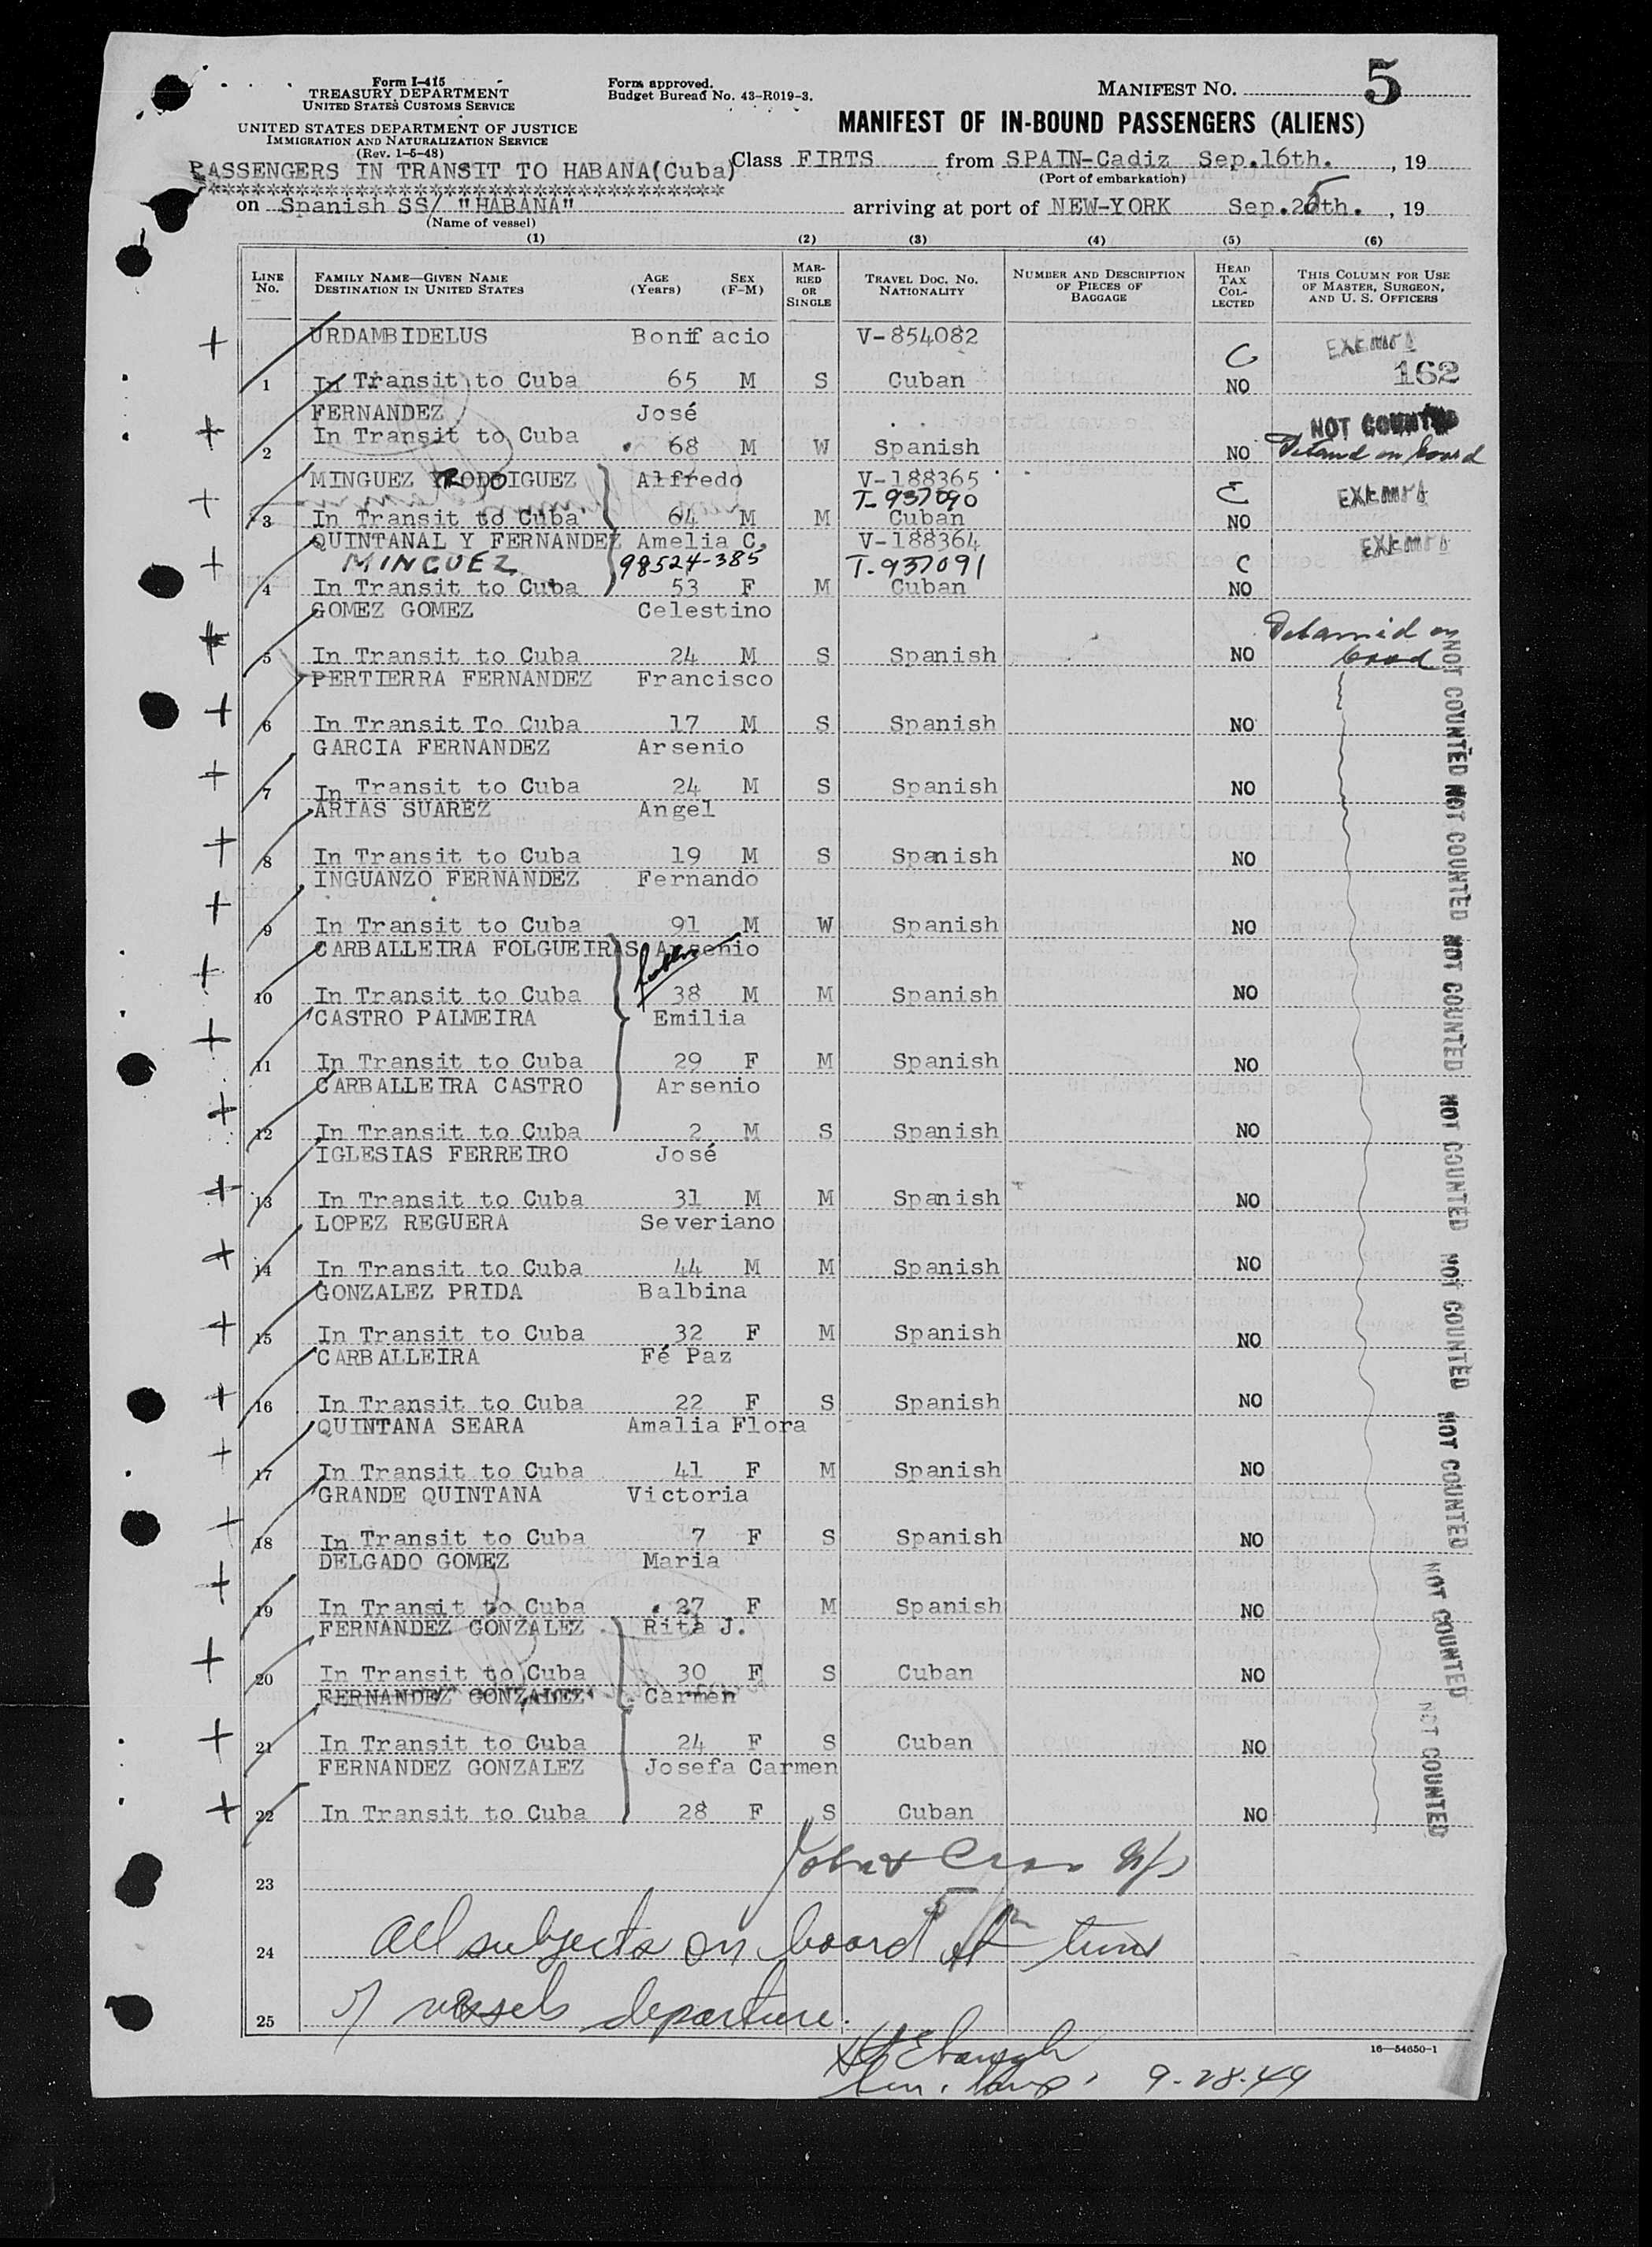 5
Form I-415
TREASURY DEPARTMENT
UNITED STATES CUSTOMS SERVICE
Form approved.
Budget Bureau No. 43-R019-3.
MANIFEST NO.
UNITED STATES DEPARTMENT OF JUSTICE
IMMIGRATION AND NATURALIZATION SERVICE
(Rev. 1-5-48)
MANIFEST OF IN-BOUND PASSENGERS (ALIENS)
PASSENGERS IN TRANSIT TO HABANA(Cuba)
Class FIRTS from SPAIN-Cadiz Sep.16th. , 19
(Port of embarkation)
***********************************
on Spanish SS/ "HABANA" arriving at port of NEW-YORK Sep.25th. , 19
(Name of vessel)
(1) (2) (3) (4) (5) (6)
LINE No. FAMILY NAME—GIVEN NAME DESTINATION IN UNITED STATES AGE (Years) SEX (F-M) MARRIED OR SINGLE TRAVEL DOC. NO. NATIONALITY NUMBER AND DESCRIPTION OF PIECES OF BAGGAGE HEAD TAX COLLECTED THIS COLUMN FOR USE OF MASTER, SURGEON, AND U. S. OFFICERS
URDAMBIDELUS Bonifacio V-854082 C EXEMPT
1 In Transit to Cuba 65 M S Cuban NO 162
FERNANDEZ José NOT COUNTED
2 In Transit to Cuba 68 M W Spanish NO Detained on board
MINGUEZ RODOIGUEZ Alfredo V-188365 C EXEMPT
T-937090
3 In Transit to Cuba 64 M M Cuban NO
QUINTANAL Y FERNANDEZ Amelia C. V-188364 EXEMPT
MINGUEZ 98524-385 T-937091 C
4 In Transit to Cuba 53 F M Cuban NO
GOMEZ GOMEZ Celestino Detained on
5 In Transit to Cuba 24 M S Spanish NO board
PERTIERRA FERNANDEZ Francisco
6 In Transit To Cuba 17 M S Spanish NO
GARCIA FERNANDEZ Arsenio
7 In Transit to Cuba 24 M S Spanish NO
ARIAS SUAREZ Angel
8 In Transit to Cuba 19 M S Spanish NO
INGUANZO FERNANDEZ Fernando
9 In Transit to Cuba 91 M W Spanish NO
CARBALLEIRA FOLGUEIRAS Arsenio
10 In Transit to Cuba 38 M M Spanish NO
CASTRO PALMEIRA Emilia
11 In Transit to Cuba 29 F M Spanish NO
CARBALLEIRA CASTRO Arsenio
12 In Transit to Cuba 2 M S Spanish NO
IGLESIAS FERREIRO José
13 In Transit to Cuba 31 M M Spanish NO
LOPEZ REGUERA Severiano
14 In Transit to Cuba 44 M M Spanish NO
GONZALEZ PRIDA Balbina
15 In Transit to Cuba 32 F M Spanish NO
CARBALLEIRA Fé Paz
16 In Transit to Cuba 22 F S Spanish NO
QUINTANA SEARA Amalia Flora
17 In Transit to Cuba 41 F M Spanish NO
GRANDE QUINTANA Victoria
18 In Transit to Cuba 7 F S Spanish NO
DELGADO GOMEZ Maria
19 In Transit to Cuba 27 F M Spanish NO
FERNANDEZ GONZALEZ Rita J.
20 In Transit to Cuba 30 F S Cuban NO
FERNANDEZ GONZALEZ Carmen
21 In Transit to Cuba 24 F S Cuban NO
FERNANDEZ GONZALEZ Josefa Carmen
22 In Transit to Cuba 28 F S Cuban NO
NOT COUNTED NOT COUNTED NOT COUNTED NOT COUNTED NOT COUNTED NOT COUNTED NOT COUNTED NOT COUNTED
23
24 All subjects on board at time
25 of vessels departure.
16—54650-1
9-28-49